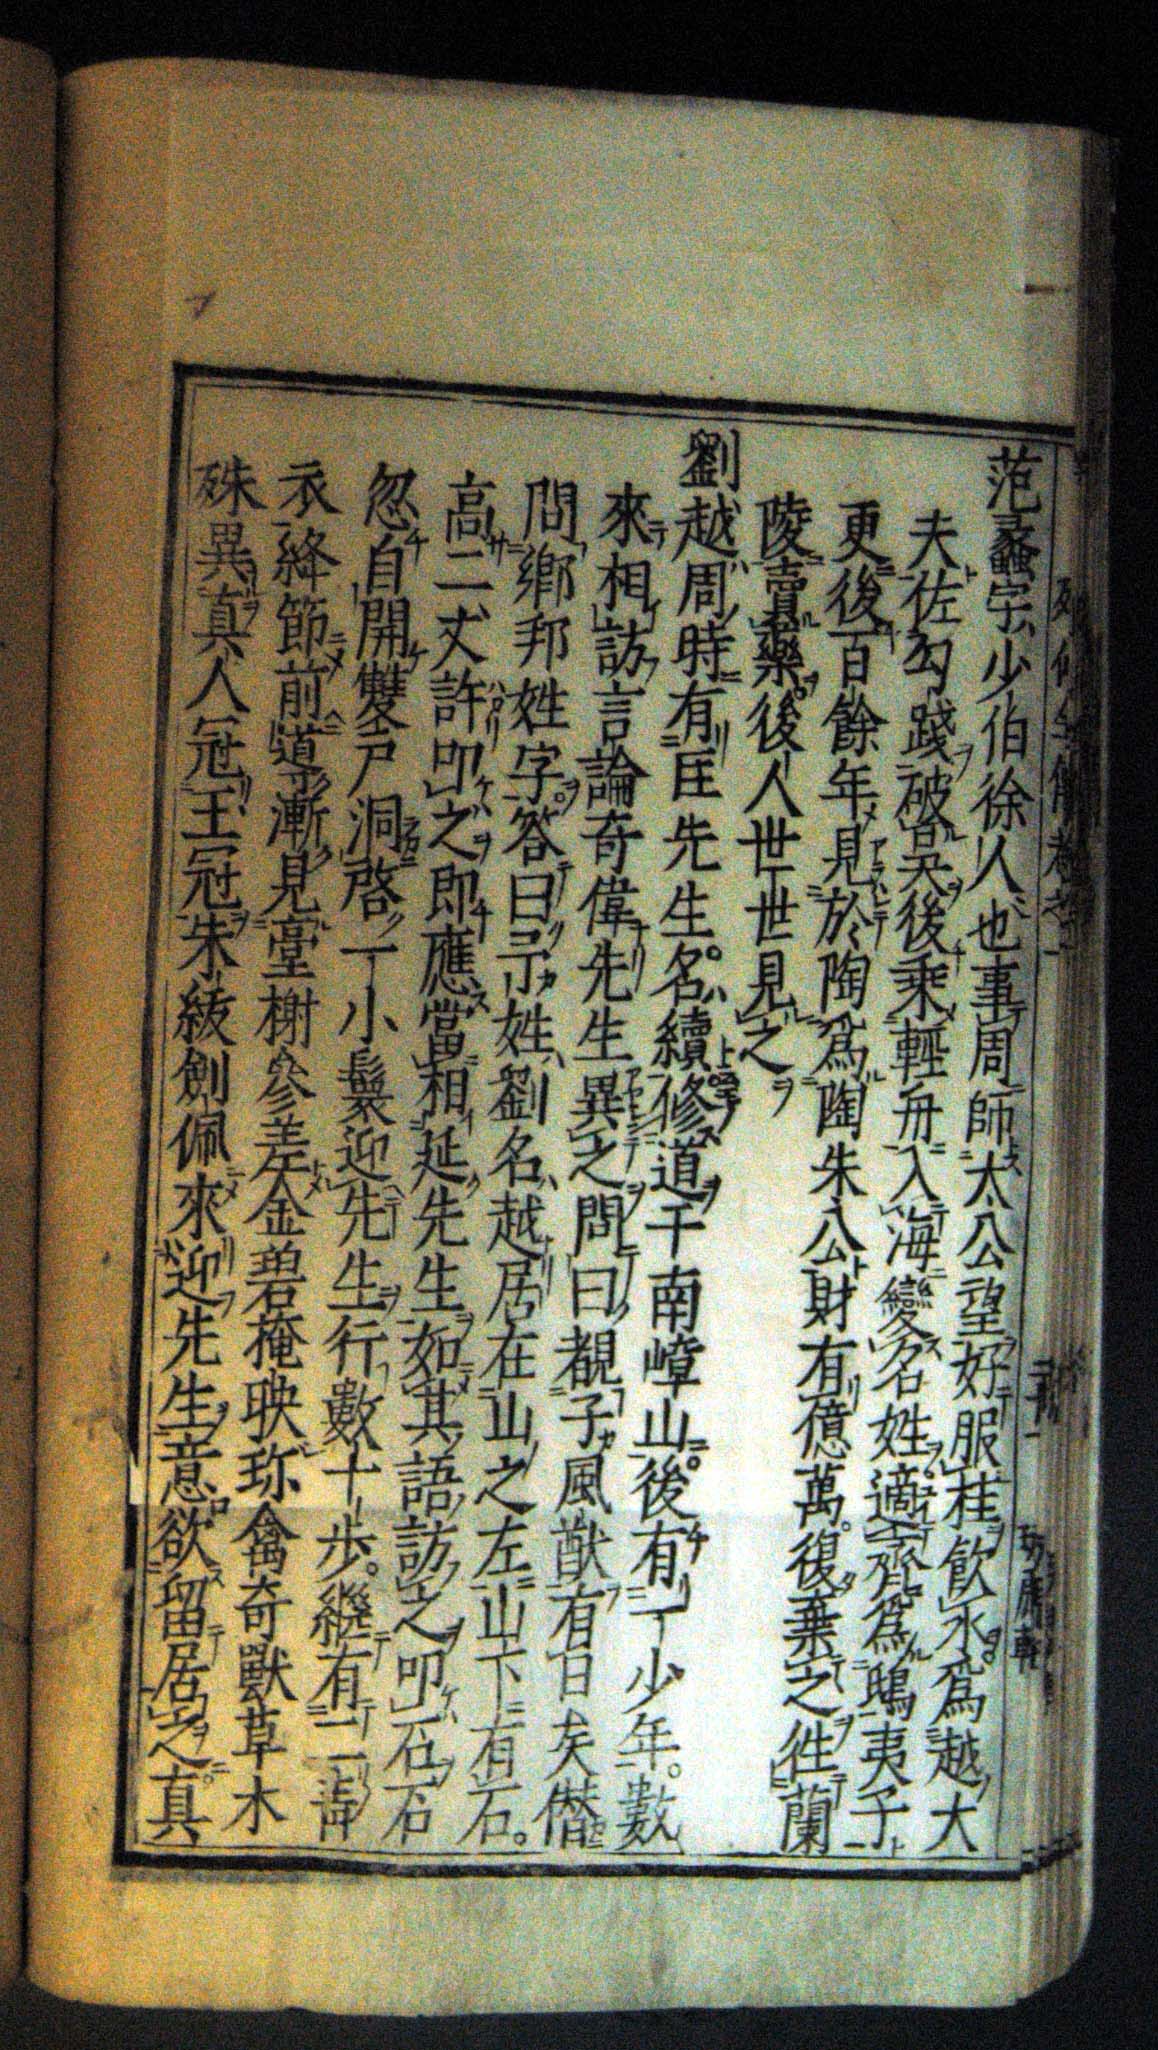 范蠡字少伯徐人也事周師太公望好服桂飲水爲越大
夫佐勾踐破吴後乘輕舟入海變名姓適齊爲鴟夷子
更後百餘年見於陶爲陶朱公財有億萬復棄之徃蘭
陵賣藥後人世世見之
劉越周時有匡先生名續修道于南嶂山後有一少年數
來相訪言論奇偉先生異之問曰覩子風猷有日矣僭
問鄉邦姓字答曰予姓劉名越居在山之左山下有石
高二丈許叩之即應當相延先生如其語訪之叩石石
忽自開雙戸洞啓一小鬟迎先生行數十步繼有二青
衣絳節前導漸見臺榭參差金碧掩映珎禽奇獸草木
殊異真人冠玉冠朱紱劍佩來迎先生意欲留居之真